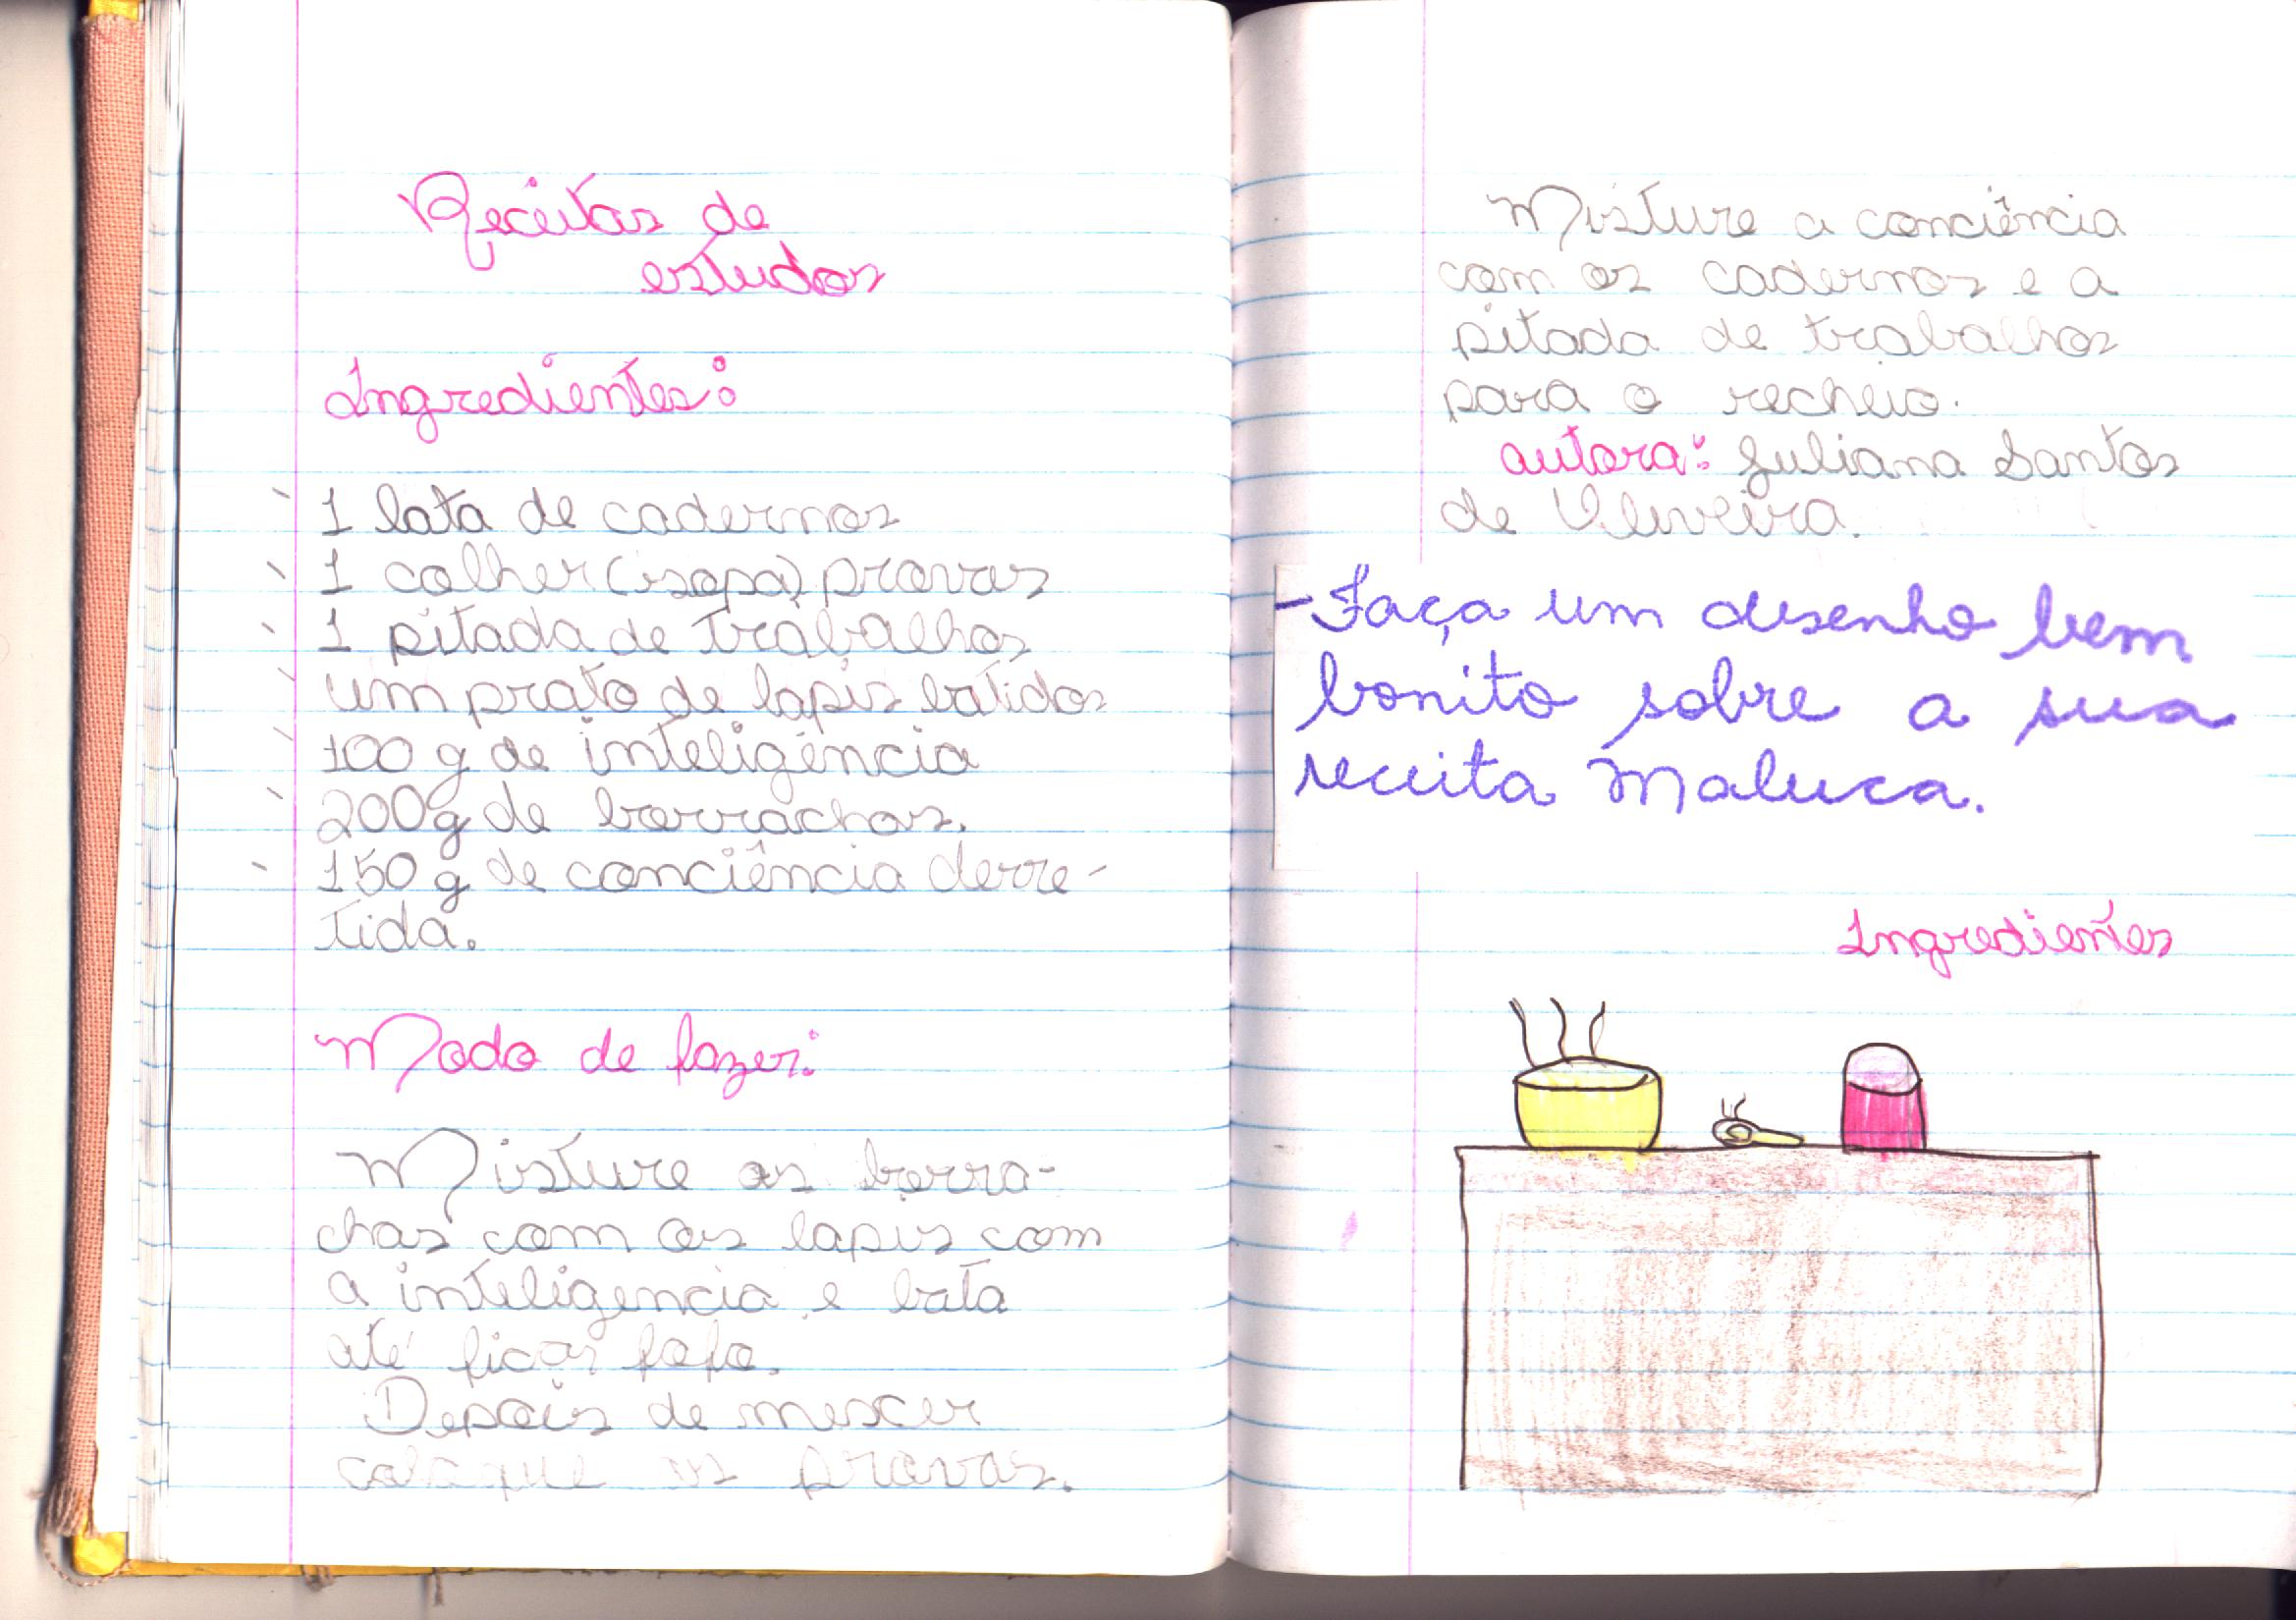 Receitas de
estudos
Ingredientes:
1 lata de cadernos
1 colher (sopa) provas
1 pitada de trabalhos
um prato de lapis batidos
100 g de inteligência
200g de borrachas.
150 g de conciência derre-
tida.
Modo de fazer:
Misture as borra-
chas com os lapis com
a inteligencia e bata
até ficar fofo.
Depois de mexer
coloque as provas.
Misture a conciência
com os cadernos e a
pitada de trabalhos
para o recheio.
autora: Juliana Santos
de Oliveira.
-Faça um desenho bem
bonito sobre a sua
receita Maluca.
Ingredientes